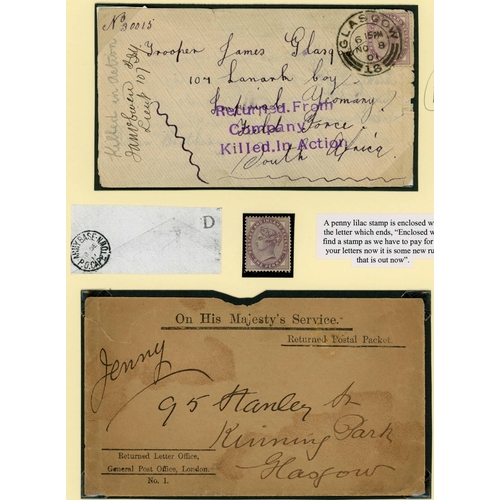 No 30015
Killed in Action
Lieut 107 Coy
Trooper James Glasg
107 Lanark Coy
Imperial Yeomanry
Field Force
South Africa
Returned From
Company
Killed.In Action
GLASGOW
6 15PM
NO 8
01
18
ARMY BASE
D
A penny lilac stamp is enclosed w
the letter which ends, "Enclosed w
find a stamp as we have to pay for
your letters now it is some new ru
that is out now".
On His Majesty's Service.
Returned Postal Packet.
Jenny
95 Stanley St
Kinning Park
Glasgow
Returned Letter Office,
General Post Office, London.
No. 1.